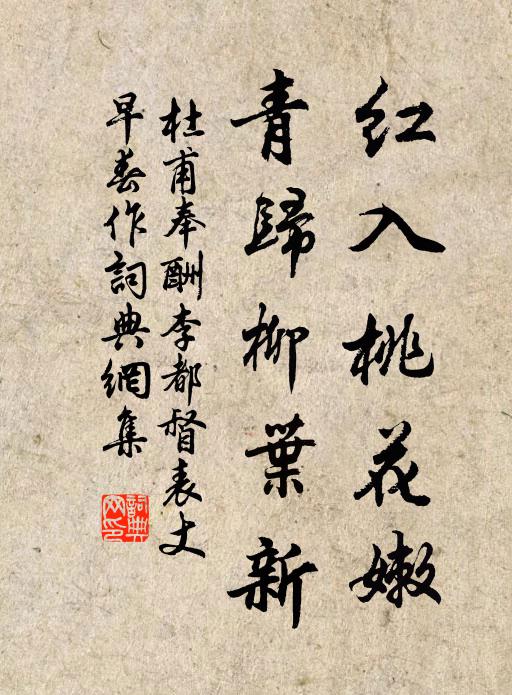 红入桃花嫩
青歸柳葉新
杜甫奉酬李都督表丈
早春作詞典網集
詞典
网印